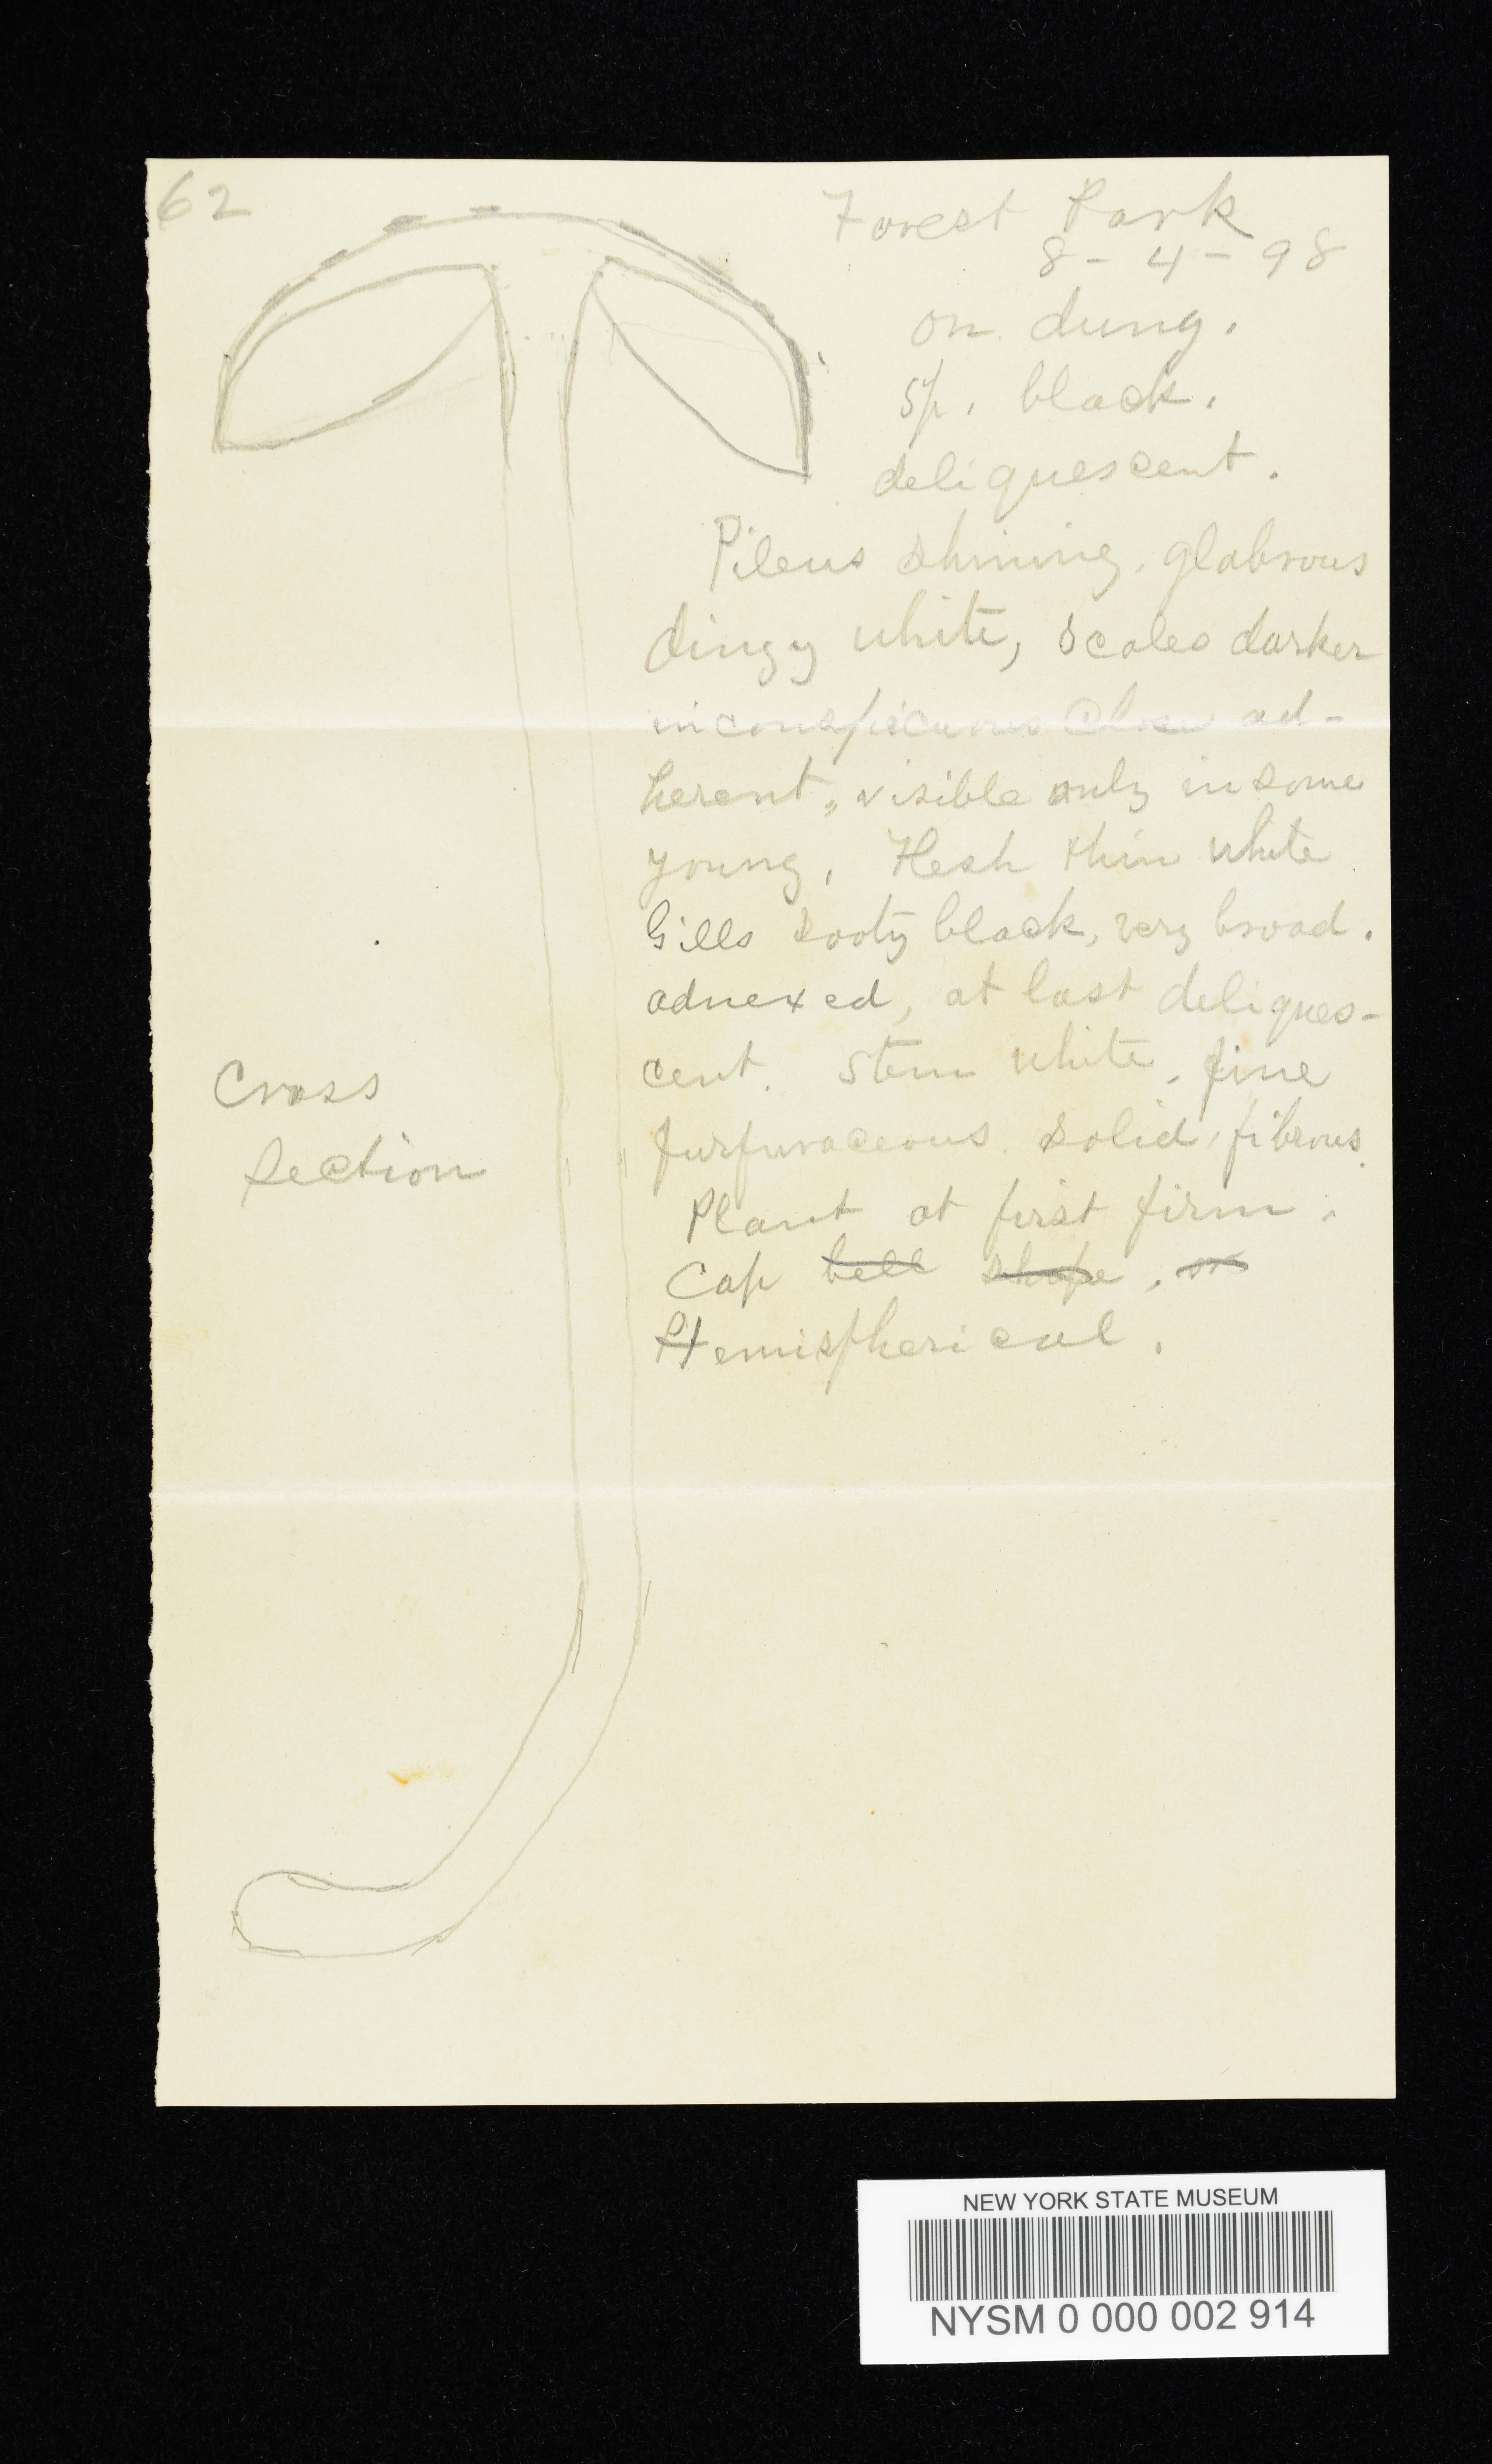 62
Forest Park
8-4-98
on dung.
Sp. black.
deliquescent.
Pileus shining, glabrous
dingy white, scales darker
inconspicuous close ad-
herent, visible only in some
young. Flesh thin white
Gills sooty black, very broad.
adnexed, at last deliques-
cent. Stem white, fine
furfuraceous solid, fibrous.
Plant at first firm.
Cap bell shape. or
Hemispherical.
Cross
Section
NEW YORK STATE MUSEUM
NYSM 0 000 002 914